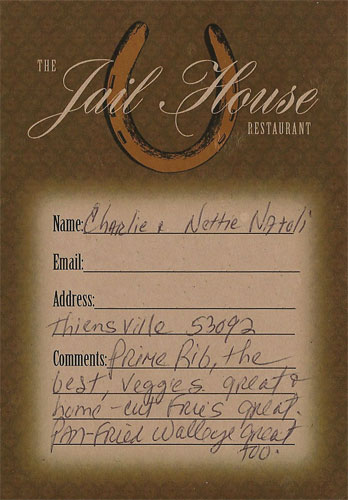 THE
Jail House
RESTAURANT
Name: Charlie & Nettie Natoli
Email:
Address:
Thiensville 53092
Comments: Prime Rib, the
best, veggies great &
home-cut Fries great.
Pan-Fried Walleye great
too.